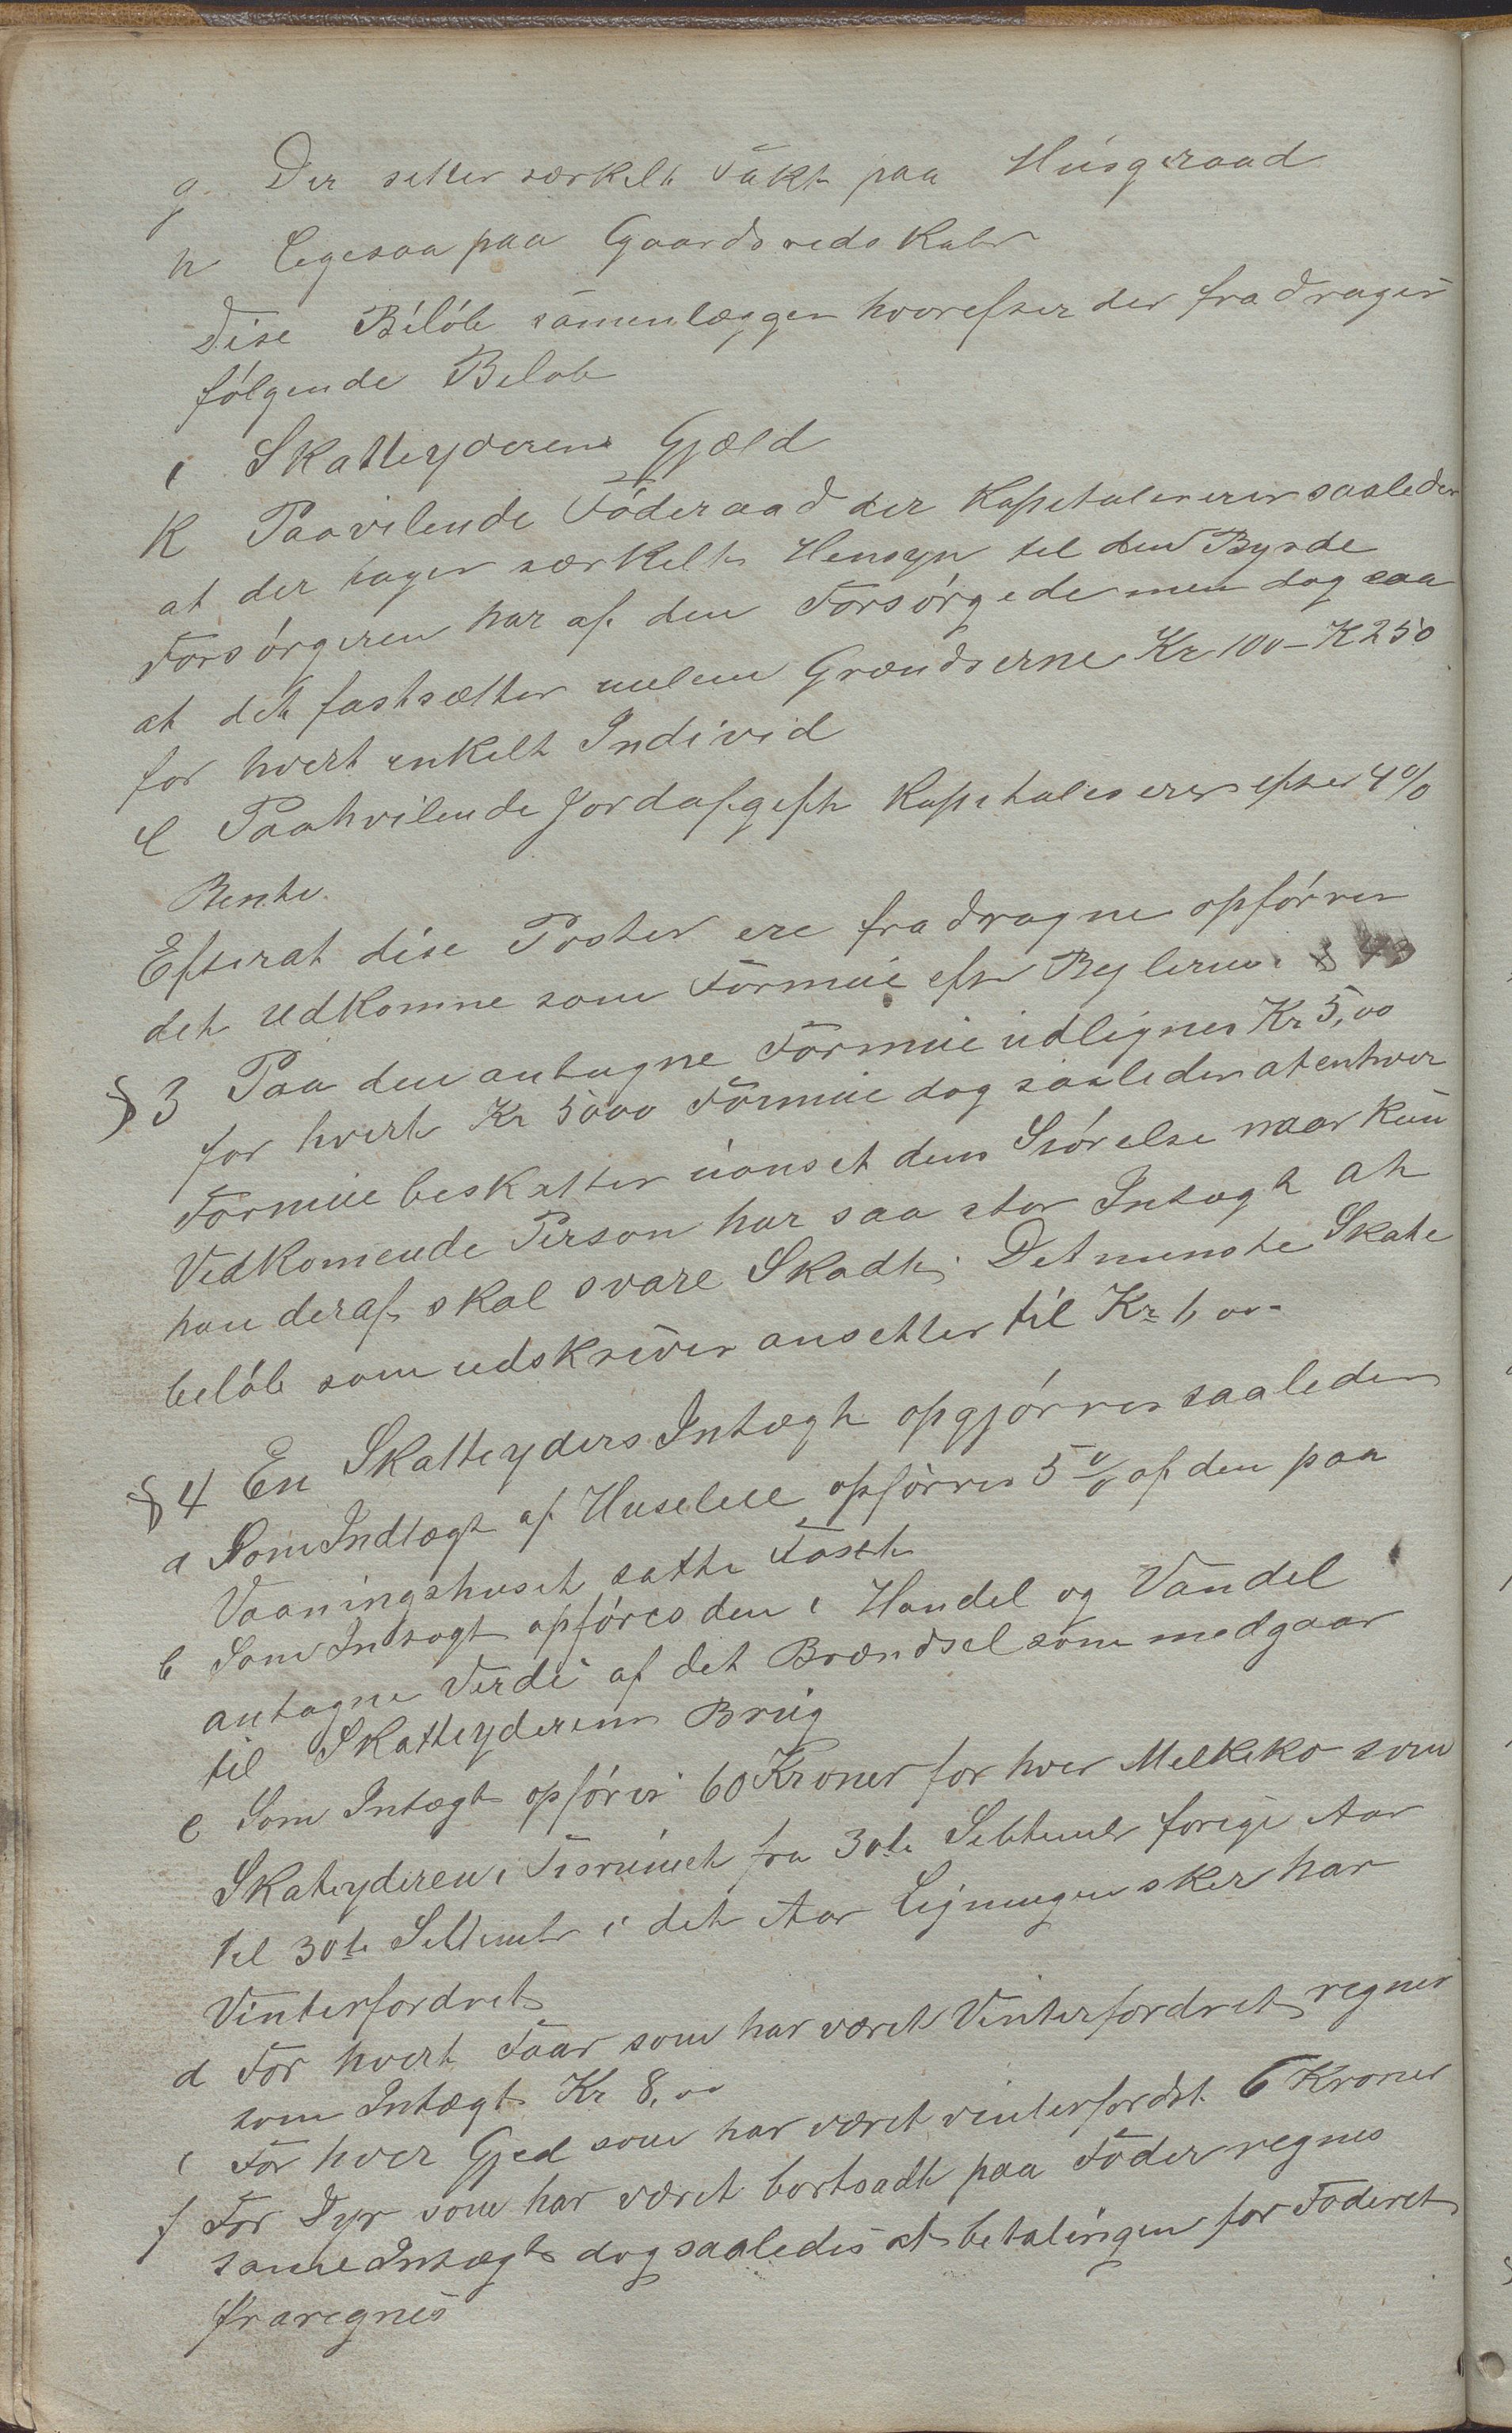 g. Der setter særkelt Takt paa Husgeraad
h Legesaa paa Gaardsredskaber
Disse Beløb samenlægges hvorefter der fradrages
følgende Beløb
i Skatteyderens Gjæld
K Paavilende Föderaad der Kapitaliseres saaledes
at der tages særkelt Hensyn til den Byrde
Forsørgeren har af den Forsørgede men dog saa
at det fastsætter mellem Grændserne Kr 100 – K 250
for hvert enkelt Individ
l Paahvilende Jordafgift Kapitaliseres efter 4%
Rente.
Efterat dise Poster ere fradragne opförres
det udkomne som Formue efter Reglerne.
§ 3 Paa den antagne Formue udlignes Kr 5,00
for hvert Kr 5000 Formue dog saaledes at enhver
Formue beskatter uanset dens Störelse naar kun
Vedkomende Person har saa stor Intægt at
han deraf skal svare Skadt. Det minste Skate
beløb som udskriver ansetter til Kr 1,00.
§ 4 En Skatteyders Intægt opgjörres saaledes
a Som Indtægt af Huseleie opförres 5% af den paa
Vaaningshuset satte Taxt
b Som Intægt opföres den i Handel og Vandel
antagne Verdi af det Brændsel som medgaar
til Skatteyderens Brug
c Som Intægt opföres 60 Kroner for hver Melkeko som
Skateyderen i Tisrumet fra 30te Sebtember forige Aar
til 30te Sebtember i det Aar Ligningen sker har
Vinterfordret
d For hvert Faar som har været Vinterfordret regnes
som Intægt Kr 8,00
e For hver Gjed som har været vinterfordret 6 Kroner
f For Dyr som har været bortsadt paa Foder regnes
samme Intægt dog saaledes at betalingen for Foderet
fraregnes